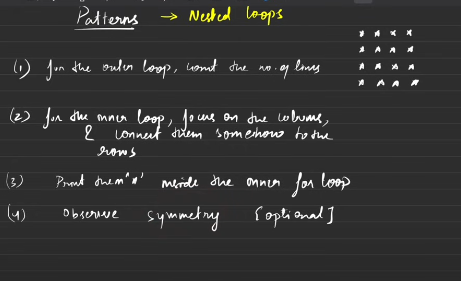 Patterns → Nested Loops
* * * *
* * * *
* * * *
* * * *
(1) for the outer loop, count the no. of lines
(2) for the inner loop, focus on the columns,
& connect them somehow to the
rows
(3) Print them '*' inside the inner for loop
(4) Observe symmetry [optional]